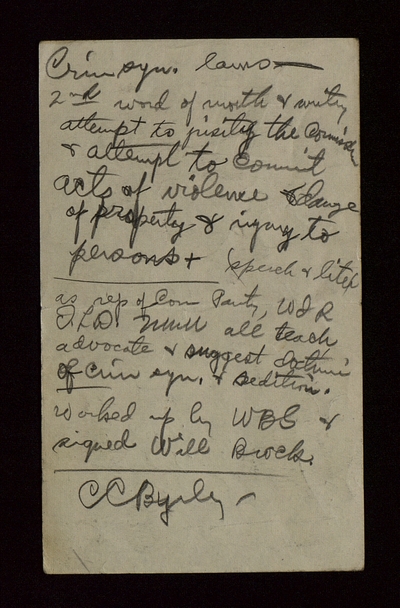 Crim syn. laws —
2nd word of mouth & writing
attempt to justify the Commission
& attempt to Commit
acts of violence &
of property & injury to
persons +
(speech & liter)
as rep of Com Party, WIR
ILD. NMU all teach
advocate & suggest doctrine
of Crim syn. & sedition.
worked up by WBS &
signed Will Brock.
CC Byrley —